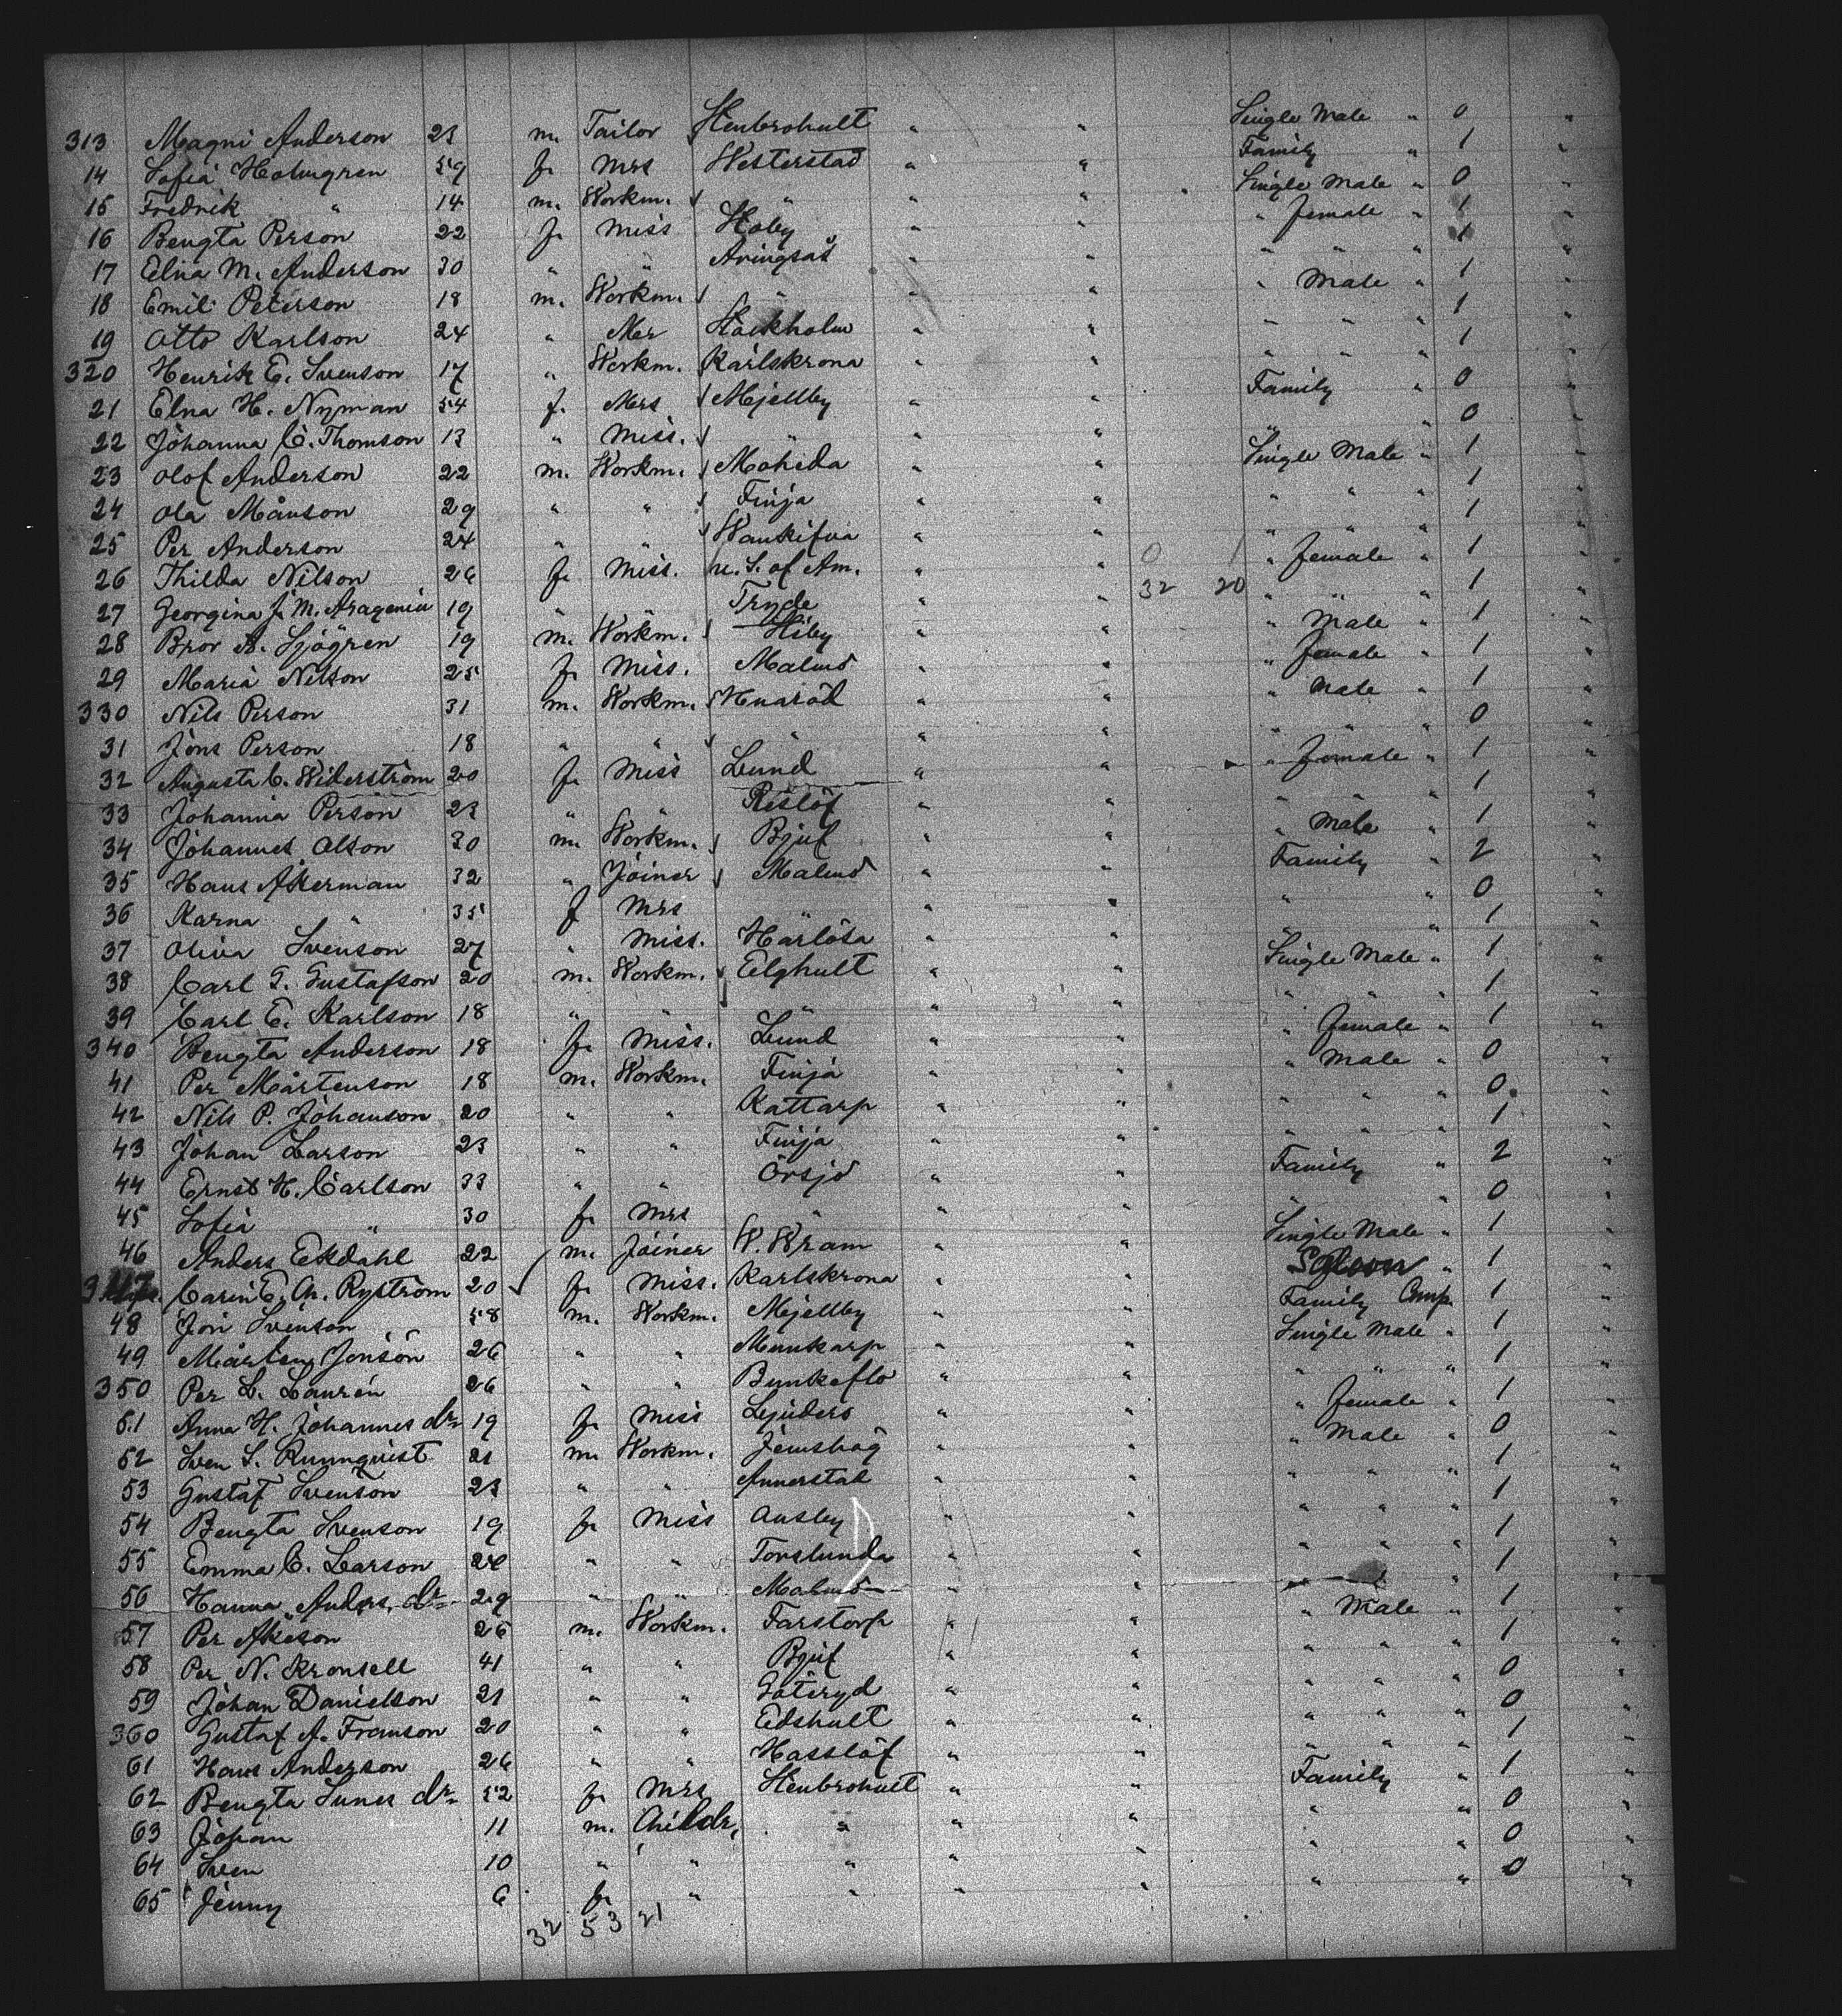 313 Magni Anderson 23 m. Tailor Stenbrohult " " Single Male " 0 "
14 Sofia Holmgren 59 f. Mrs Westerstad " " Family " 1
15 Fredrik " 14 m. Workm. " " " Single Male " 0 "
16 Bengta Person 22 f. Miss Hoby " " " female " 1 "
17 Elna M. Anderson 30 " " " " " " " 1 "
18 Emil Peterson 18 m. Workm. " " " " Male " 1
19 Otto Karlson 24 " Mer Stockholm " " " " " 1
320 Henrik E. Svenson 17 " Workm. Karlskrona " " " " " 1
21 Elna H. Nyman 54 f. Mrs Mjellby " " Family " 0 "
22 Johanna C. Thomson 13 " Miss. " " " " " 0 "
23 Olof Anderson 22 m. Workm. Moheda " " Single Male " 1 "
24 Ola Månson 29 " " Finja " " " " " 1 "
25 Per Anderson 24 " " " " " " " 1 "
26 Thilda Nilson 26 f. Miss. u. S. of Am. " " 0 1 " female " 1 "
27 Georgina J. M. 19 " " Tryde " " 32 20 " " " 1 "
28 Bror A. Sjögren 19 m. Workm. Hiby " " " Male " 1 "
29 Maria Nilson 25 f. Miss. Malmö " " " female " 1 "
330 Nils Person 31 m. Workm. " " " Male " 1 "
31 Jöns Person 18 " " " " " " " " 0 "
32 Augusta C. Widerström 20 f. Miss Lund " " " female " 1 "
33 Johanna Person 23 " " Reslöf " " " " " 1 "
34 Johannes Olson 30 m. Workm. Bjuf " " " Male " 1 "
35 Hans Åkerman 32 " Joiner Malmö " " Family " 2 "
36 Karna " 35 f Mrs " " " " " 0 "
37 Oliva Svenson 27 " Miss. Harlösa " " " " 1 "
38 Carl G. Gustafson 20 m. Workm. Elghult " " Single Male " 1 "
39 Carl E. Karlson 18 " " " " " " " " 1 "
340 Bengta Anderson 18 f. Miss. Lund " " " female " 1 "
41 Per Mårtenson 18 m. Workm. Finja " " " Male " 0 "
42 Nils P. Johanson 20 " " Kattarp " " " " " 0 "
43 Johan Larson 23 " " Finja " " " " " 1 "
44 Ernst H. Carlson 33 " " Örsjö " " Family " 2 "
45 Sofia " 30 f. Mrs " " " " " 0 "
46 Anders Ekdahl 22 m. Joiner W. Wram " " Single Male " 1 "
347 Carin E. Ch. Ryström 20 f. Miss. Karlskrona " " Saloon " 1 "
48 Jöri Svenson 58 m. Workm. Mjellby " " Family Comp. 1 "
49 Mårten Jönson 26 " " Munkarp " " Single Male " 1 "
350 Per L. Laurén 26 " " Bunkeflo " " " " " 1 "
51 Anna H. Johannes dr 19 f. Miss Ljuders " " " female " 1 "
52 Sven S. Runnqvist 21 m. Workm. Jemshög " " " Male " 0 "
53 Gustaf Svenson 23 " " Annerstad " " " " " 1 "
54 Bengta Svenson 19 f. Miss " " " " " 1 "
55 Emma C. Larson 24 " " Torslunda " " " " " 1 "
56 Hanna Anders dr 29 " " Malmö " " " " " 1 "
57 Per Åkeson 26 m. Workm. Farstorp " " " Male " 1 "
58 Per N. Kronsell 41 " " Bjuf " " " " " 1 "
59 Johan Danielson 21 " " Göteryd " " " " " 0 "
360 Gustaf A. Franson 20 " " Edshult " " " " " 0 "
61 Hans Anderson 26 " " Hasslöf " " " " " 1 "
62 Bengta Sunes dr 52 f. Mrs Stenbrohult " " Family " 1 "
63 Johan 11 m. Childr. " " " " " 0 "
64 Sven 10 " " " " " " " 0 "
65 Jenny 6 f. " " " " " " 0 "
32 53 21